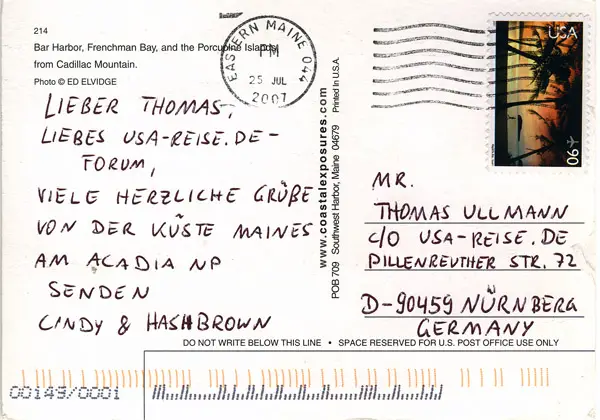 214
Bar Harbor, Frenchman Bay, and the Porcupine Islands
from Cadillac Mountain.
Photo © ED ELVIDGE
EASTERN MAINE 044
PM
25 JUL
2007
USA
90
LIEBER THOMAS,
LIEBES USA-REISE.DE-
FORUM,
VIELE HERZLICHE GRÜßE
VON DER KÜSTE MAINES
AM ACADIA NP
SENDEN
CINDY & HASHBROWN
www.coastalexposures.com
POB 709 Southwest Harbor, Maine 04679 Printed in U.S.A.
MR.
THOMAS ULLMANN
C/O USA-REISE.DE
PILLENREUTHER STR. 72
D-90459 NÜRNBERG
GERMANY
DO NOT WRITE BELOW THIS LINE • SPACE RESERVED FOR U.S. POST OFFICE USE ONLY
00149/0001